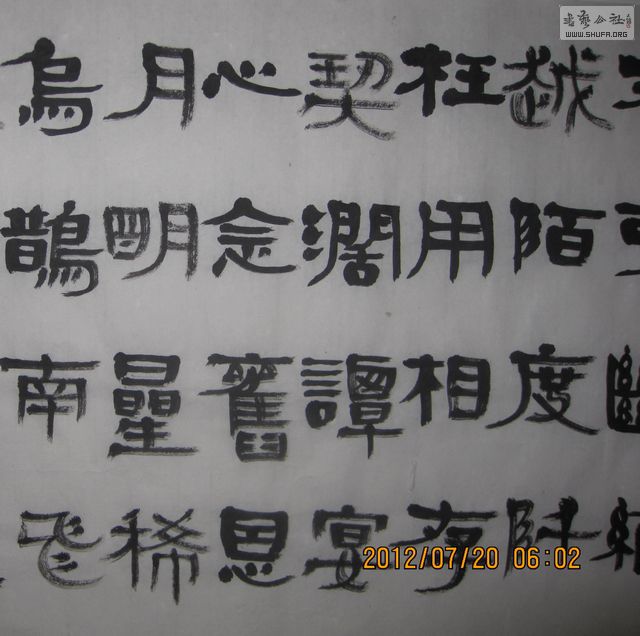 越陌度阡
枉用相存
契濶譚宴
心念舊恩
月明曐稀
烏鵲南飛
書藝公社
WWW.SHUFA.ORG
2012/07/20 06:02